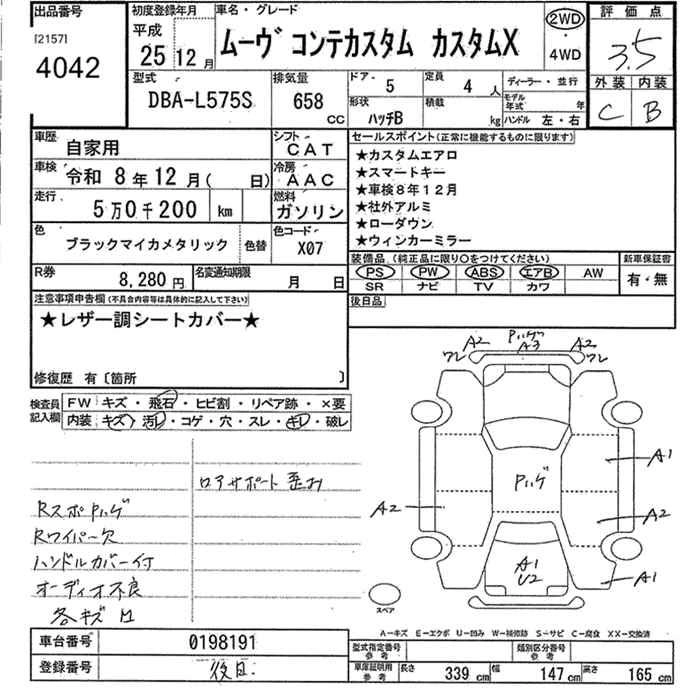 出品番号
[2157]
4042
初度登録年月
平成
25 12月
車名・グレード
ムーヴ コンテカスタム カスタムX
2WD
・
4WD
評価点
3.5
外装 内装
C B
型式
DBA-L575S
排気量
658
CC
ドア・ 5
定員 4 人
形状 ハッチB
積載 kg
ディーラー・並行
モデル年式 年
ハンドル 左・右
車歴
自家用
シフト
CAT
車検
令和 8年12月( 日)
冷房
AAC
走行
5万0千200 km
燃料
ガソリン
色
ブラックマイカメタリック
色替
色コード
X07
R券
8,280円
名変通知期限
月 日
セールスポイント(正常に機能するものに限ります)
★カスタムエアロ
★スマートキー
★車検8年12月
★社外アルミ
★ローダウン
★ウィンカーミラー
装備品 (純正品に限り○をつけてください)
PS PW ABS エアB AW
SR ナビ TV カワ
新車保証書
有・無
後日品
注意事項申告欄(不具合内容等は具体的に記入して下さい)
★レザー調シートカバー★
修復歴 有〔箇所 〕
検査員記入欄
FW キズ・飛石・ヒビ割・リペア跡・×要
内装 キズ・汚レ・コゲ・穴・スレ・キレ・破レ
ロアサポート歪み
Rスポハゲ
Rワイパー欠
ハンドルカバー付
オーディオ不良
各キズ凹
A2
ワレ
ハゲ
A3
A2
ワレ
A1
A2
ハゲ
A2
A1
U2
A1
スペア
A-キズ E-エクボ U-凹み W-補修跡 S-サビ C-腐食 XX-交換済
車台番号
0198191
登録番号
後日
型式指定番号
参考
類別区分番号
参考
車庫証明用
参考
長さ 339 cm
幅 147 cm
高さ 165 cm